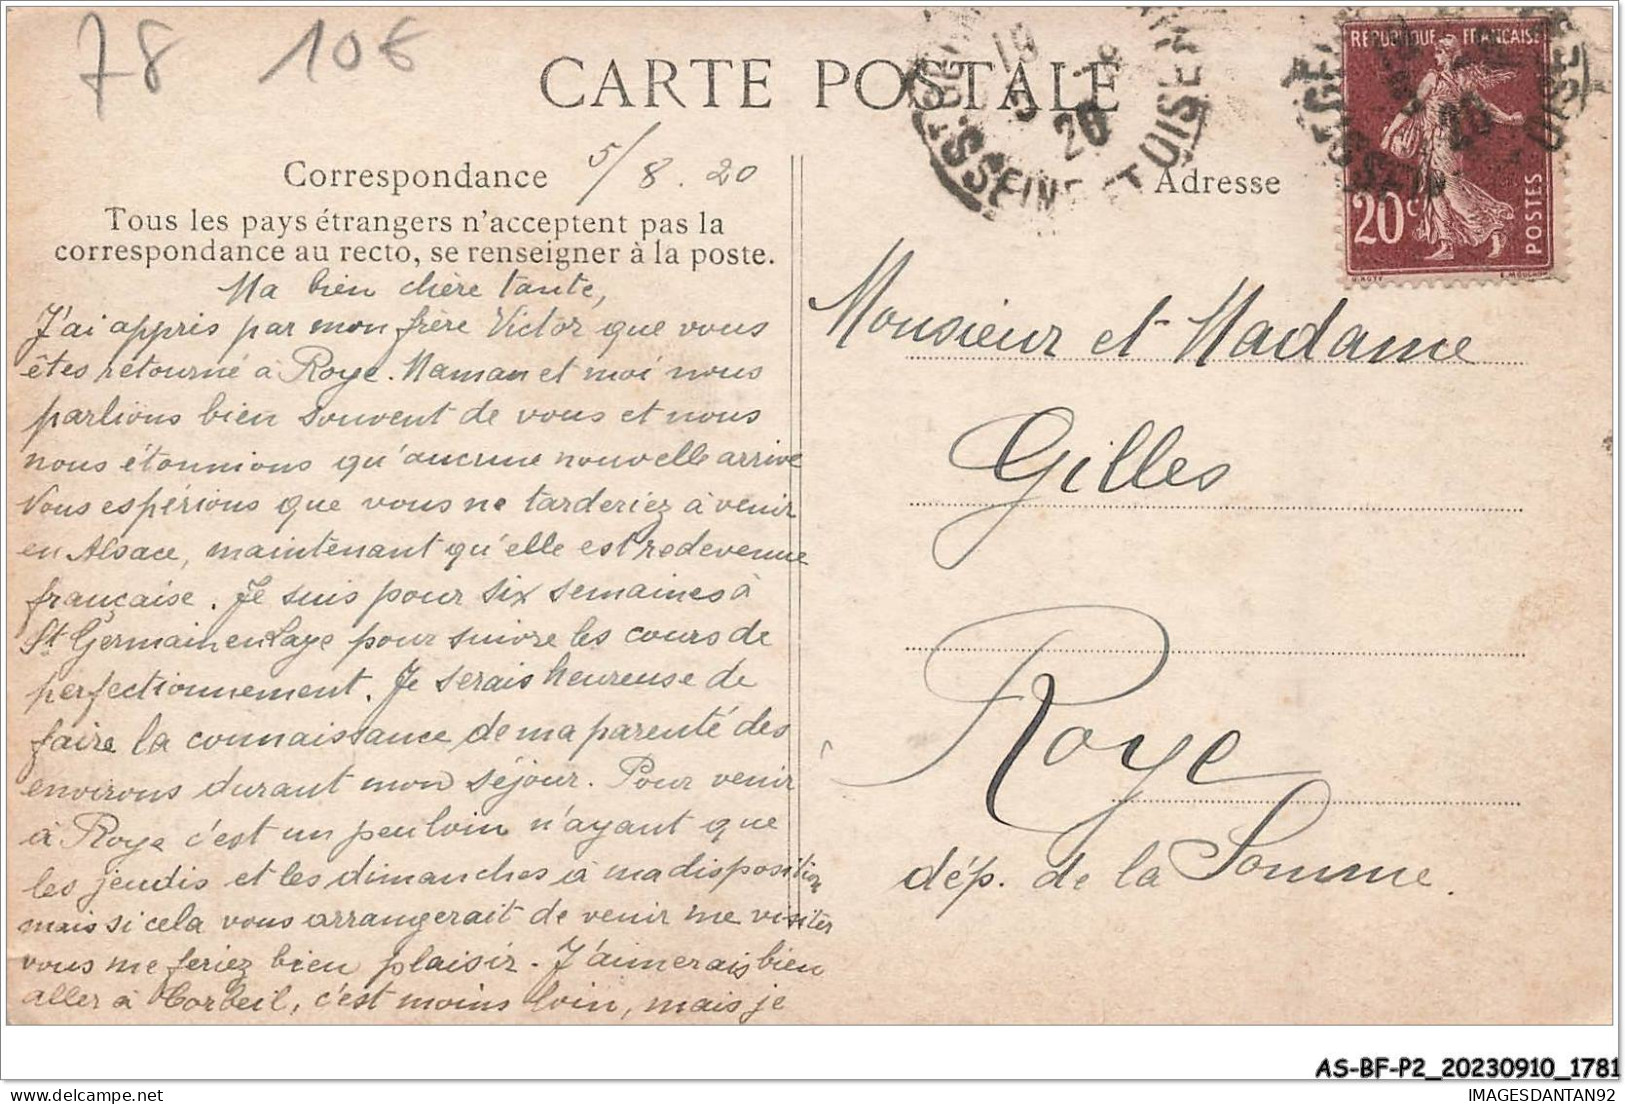 78 10€
CARTE POSTALE
Correspondance 5/8.20
Tous les pays étrangers n'acceptent pas la
correspondance au recto, se renseigner à la poste.
Ma bien chère tante,
J'ai appris par mon frère Victor que vous
êtes retourné à Roye. Maman et moi nous
parlions bien souvent de vous et nous
nous étonnions qu'aucune nouvelle arrive
Nous espérions que vous ne tarderiez à venir
en Alsace, maintenant qu'elle est redevenue
française. Je suis pour six semaines à
St Germain en Laye pour suivre les cours de
perfectionnement. Je serais heureuse de
faire la connaissance de ma parenté des
environs durant mon séjour. Pour venir
à Roye c'est un peu loin n'ayant que
les jeudis et les dimanches à ma disposition
mais si cela vous arrangerait de venir me visiter
vous me feriez bien plaisir. J'aimerais bien
aller à Corbeil, c'est moins loin, mais je
Adresse
Monsieur et Madame
Gilles
Roye
dép. de la Somme.
REPUBLIQUE FRANÇAISE
20c
POSTES
SEINE ET OISE
20
AS-BF-P2_20230910_1781
IMAGESDANTAN92